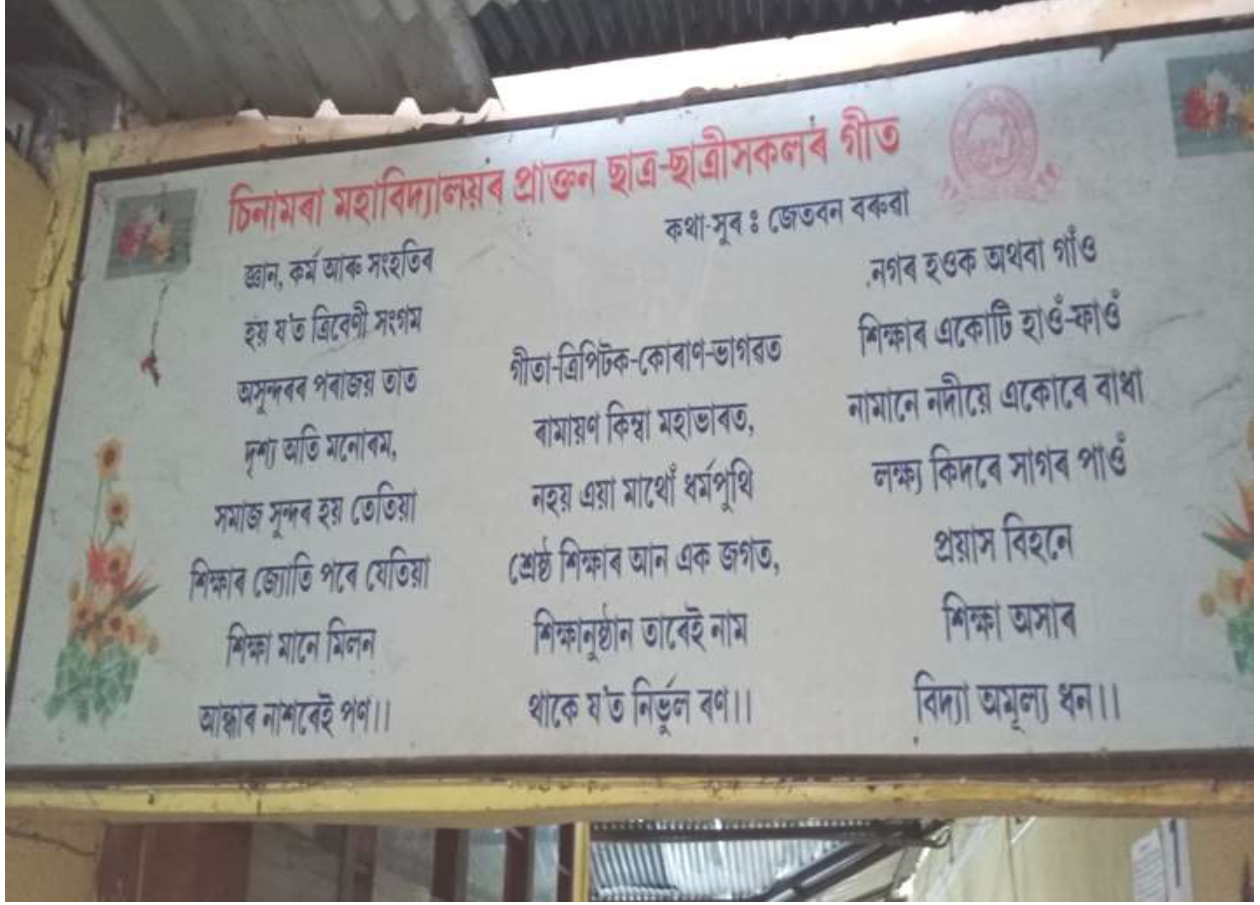 চিনামৰা মহাবিদ্যালয়ৰ প্ৰাক্তন ছাত্ৰ-ছাত্ৰীসকলৰ গীত
কথা-সুৰ ঃ জেতবন বৰুৱা
জ্ঞান, কৰ্ম আৰু সংহতিৰ
হয় য'ত ত্ৰিবেণী সংগম
অসুন্দৰৰ পৰাজয় তাত
দৃশ্য অতি মনোৰম,
সমাজ সুন্দৰ হয় তেতিয়া
শিক্ষাৰ জ্যোতি পৰে যেতিয়া
শিক্ষা মানে মিলন
আন্ধাৰ নাশৰেই পণ।।
গীতা-ত্ৰিপিটক-কোৰাণ-ভাগৱত
ৰামায়ণ কিম্বা মহাভাৰত,
নহয় এয়া মাথোঁ ধৰ্মপুথি
শ্ৰেষ্ঠ শিক্ষাৰ আন এক জগত,
শিক্ষানুষ্ঠান তাৰেই নাম
থাকে য'ত নিৰ্ভুল ৰণ।।
নগৰ হওক অথবা গাঁও
শিক্ষাৰ একোটি হাওঁ-ফাওঁ
নামানে নদীয়ে একোৰে বাধা
লক্ষ্য কিদৰে সাগৰ পাওঁ
প্ৰয়াস বিহনে
শিক্ষা অসাৰ
বিদ্যা অমূল্য ধন।।